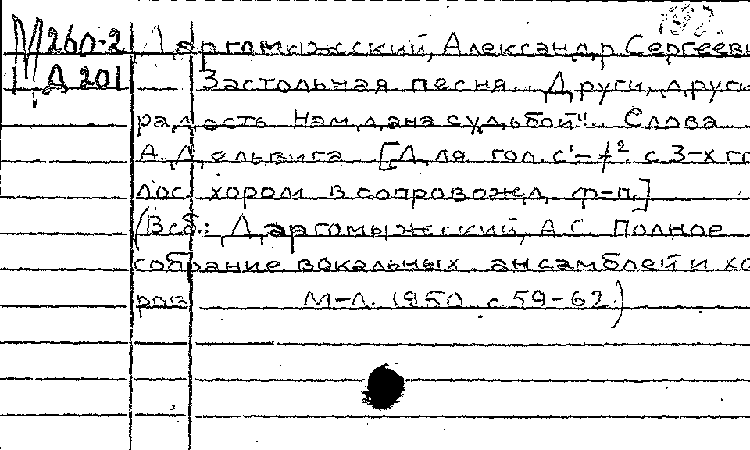 М260-2 Даргомыжский, Александр Сергееви
Д 201 Застольная песня. "Други, други,
радость нам дана судьбой". Слова
А. Дельвига [Для гол. с¹-f² с 3-х го
лос. хором в сопровожд. ф-п.]
(В сб.: Даргомыжский, А.С. Полное
собрание вокальных ансамблей и хо
ров М-Л. 1950 с 59-62.)